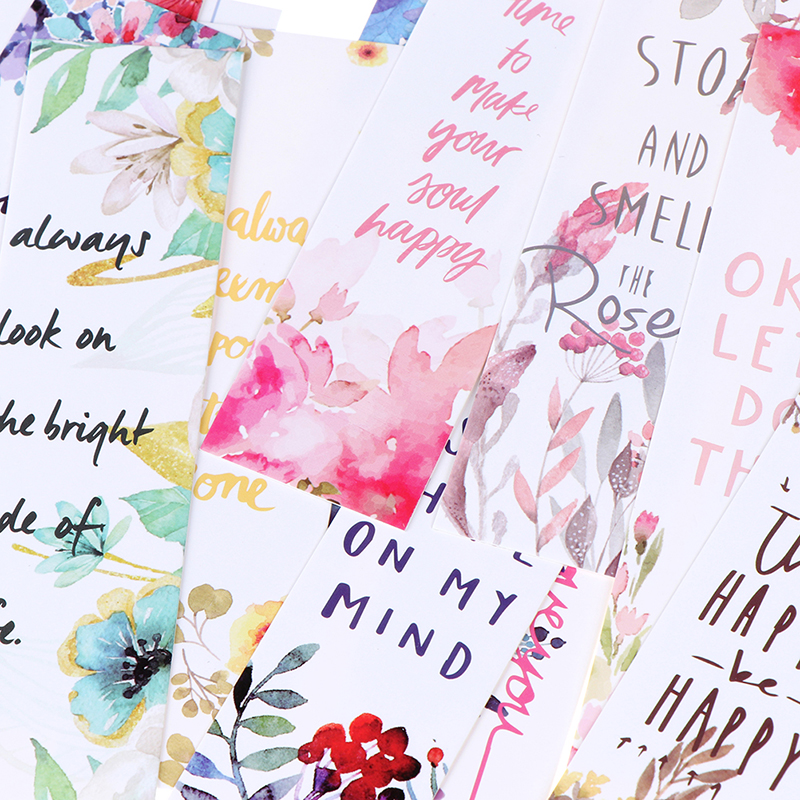 always
look on
the bright
de of
fe.
alwa
exem
po
t
one
Time
to
make
your
soul
happy
STOP
AND
SMELL
THE
Rose
OK
LET
DO
TH
ON MY
MIND
you
HAPP
be
HAPPY